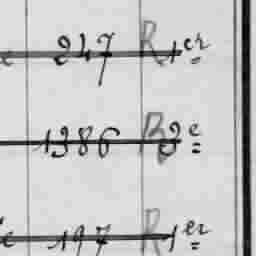 247 R 1er
1386 R 2e
197 R 1er